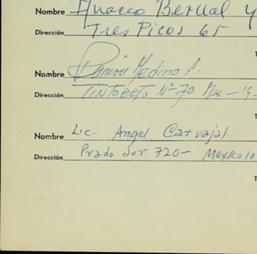 Nombre Bernal y
Dirección Tres Picos 65
Nombre Ramón Medina A.
Dirección Tintoreto Nº 70 Mex-19-
Nombre Lic. Angel Carvajal
Dirección Prado Sur 720- Mexico 10